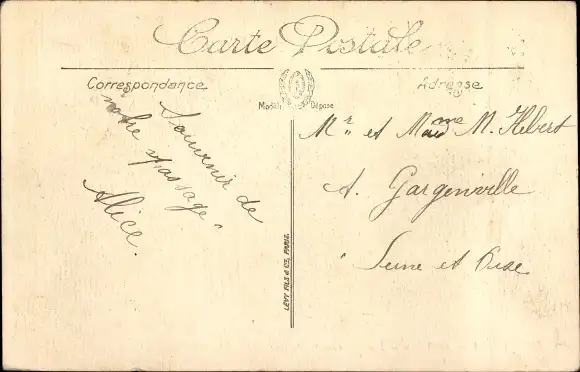 Carte Postale
Correspondance
Adresse
Modèle Déposé
Souvenir de
notre passage.
Alice.
Mr et Mme M. Hebert
A. Gargenville
Seine et Oise
LÉVY FILS & Cie, PARIS.